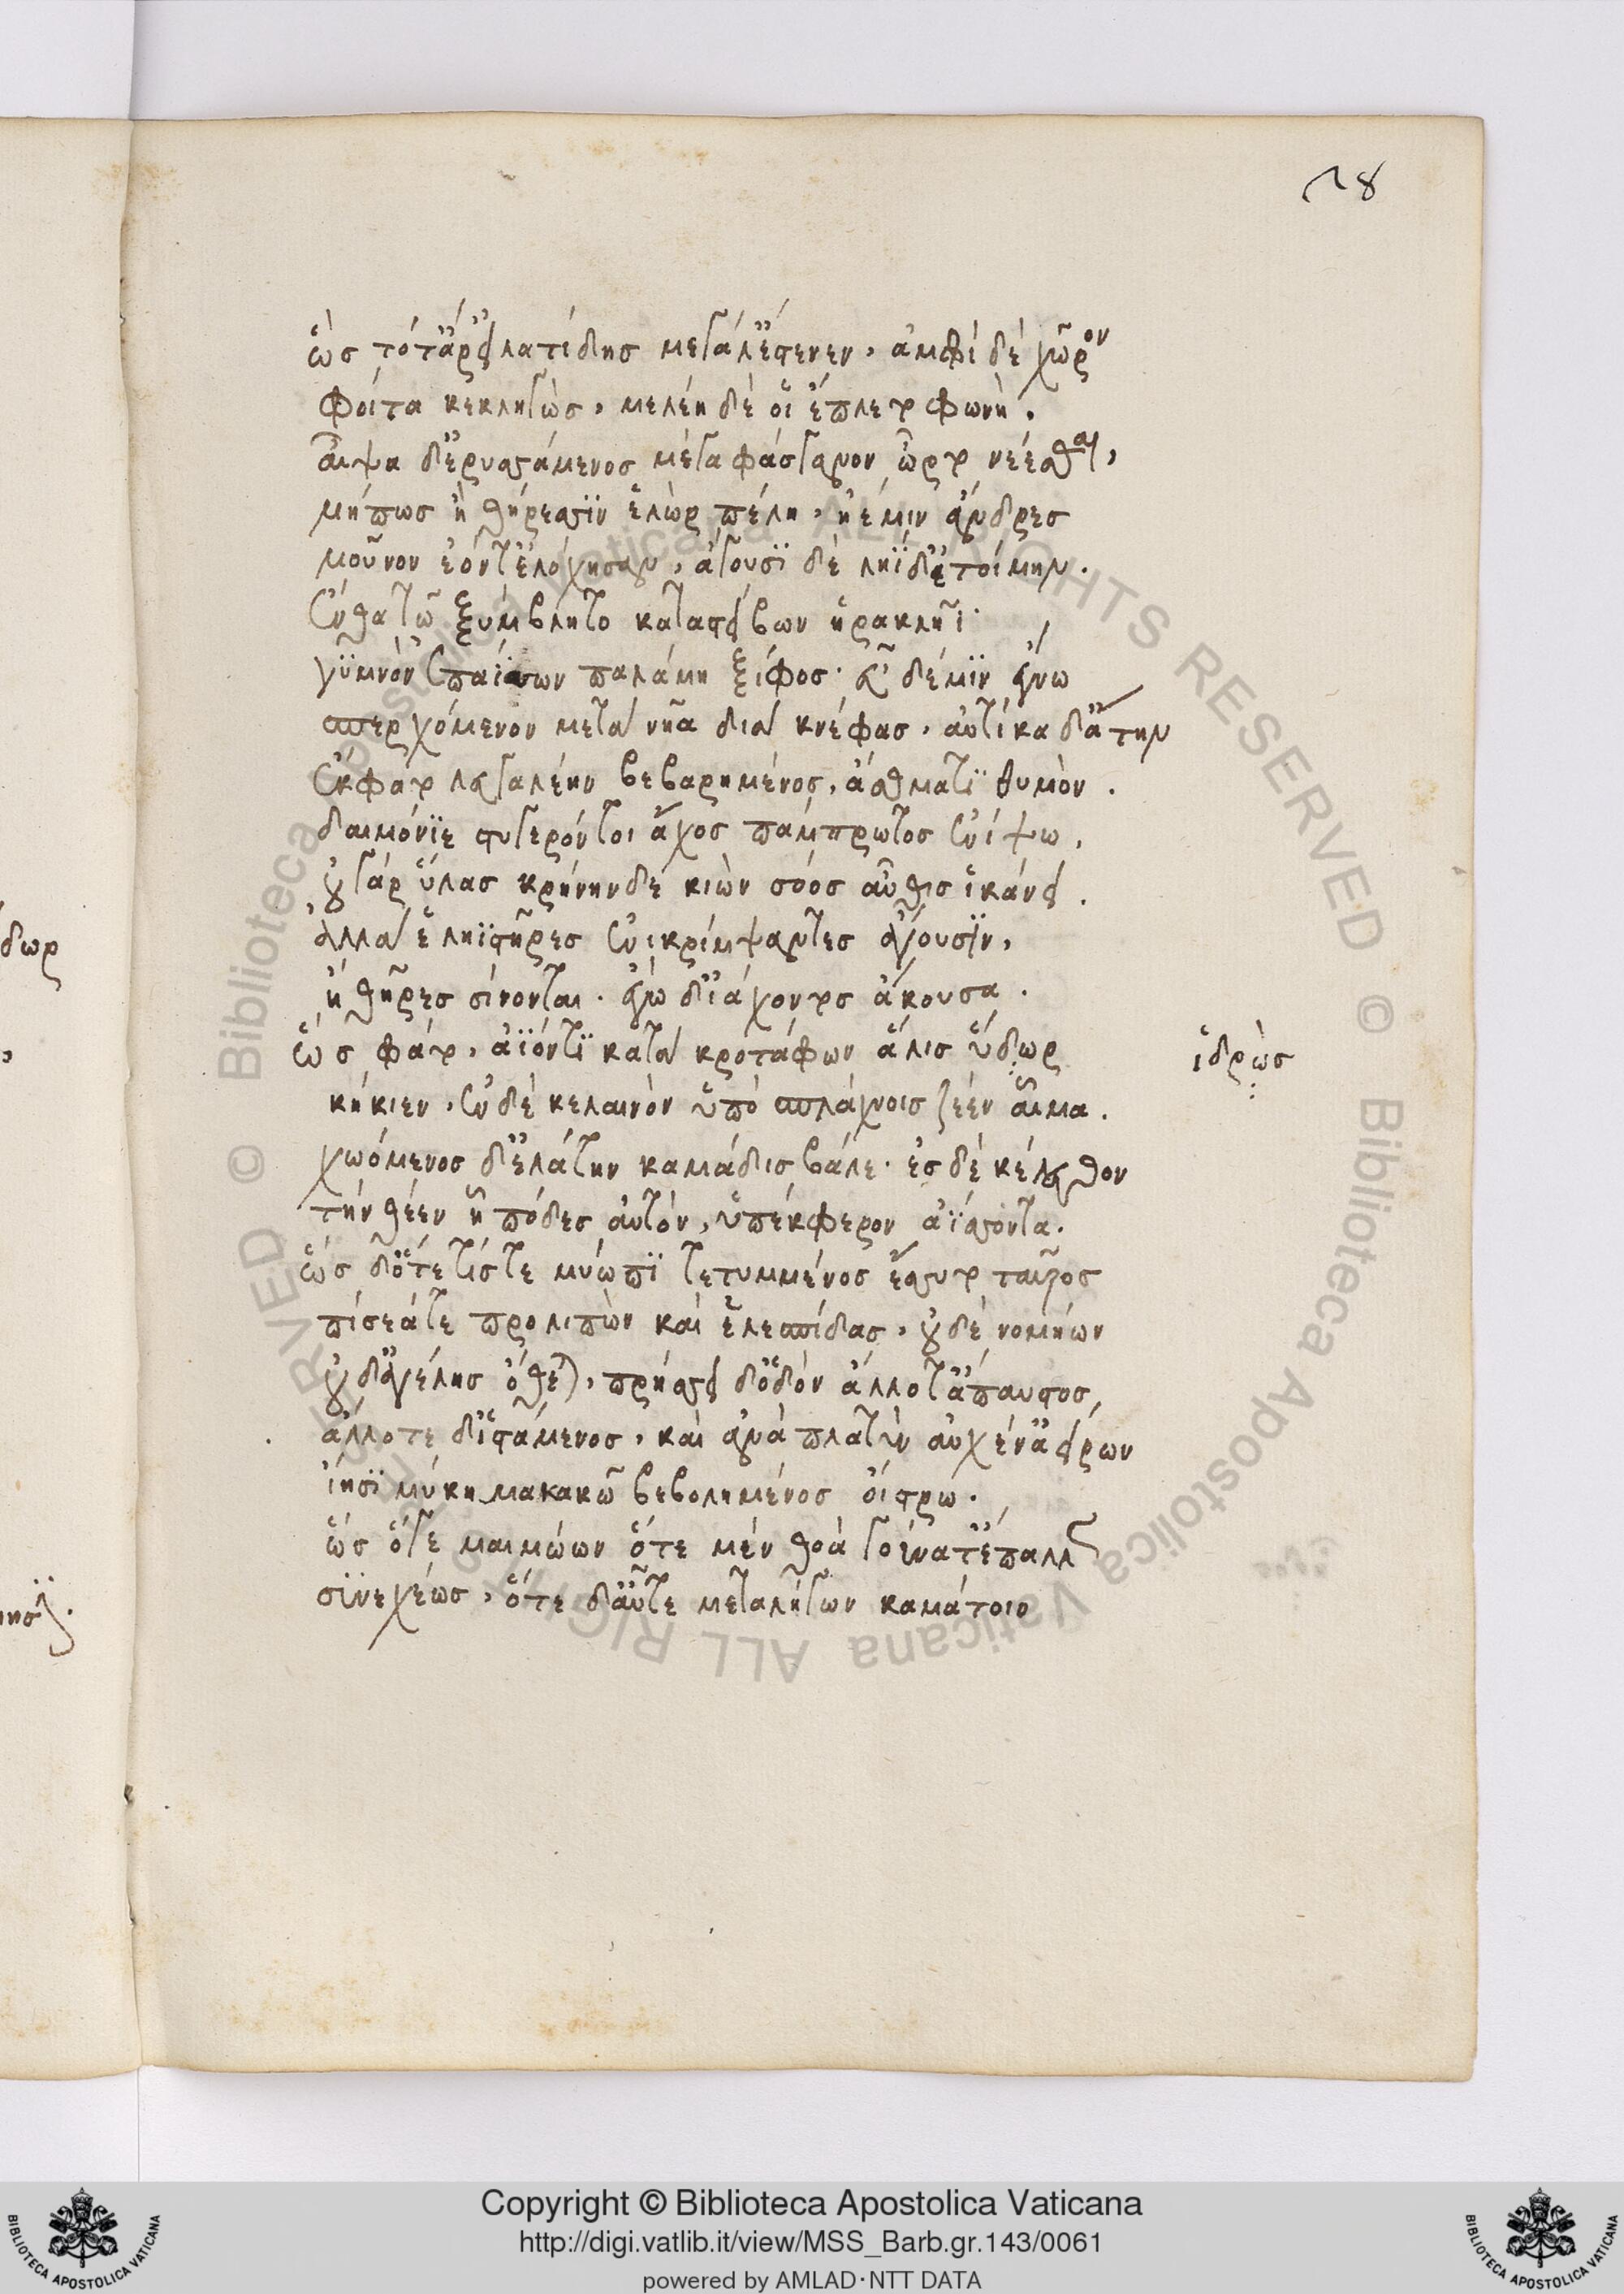 28
ὣς τότ' ἄρ' εἰλατίδης μεγάλ' ἔστενεν, ἀμφὶ δὲ χῶρον
φοίτα κεκληγὼς, μελέη δέ οἱ ἔπλετο φωνή.
αἶψα δ' ἐρυσσάμενος μέγα φάσγανον ὦρτο νέεσθαι,
μήπως ἢ θήρεσσιν ἕλωρ πέλη, ἠέ μιν ἄνδρες
μοῦνον ἐόντ' ἐλόχησαν, ἄγουσι δὲ ληΐδ' ἑτοίμην.
ἔνθα τῷ ξύμβλητο κατὰ στίβον ἡρακλῆϊ
γυμνὸν ἐπαΐσσων παλάμῃ ξίφος. εὖ δέ μιν ἔγνω
σπερχόμενον μετὰ νῆα διὰ κνέφας, αὐτίκα δ' ἄτην
ἔκφατο λευγαλέην βεβαρημένος, ἄσθματι θυμόν.
δαιμόνιε στυγερόν τοι ἄχος πάμπρωτος ἐνίψω.
οὐ γὰρ ὕλας κρήνην δὲ κιὼν σόος αὖθις ἱκάνει.
ἀλλὰ ἑ ληϊστῆρες ἐνικρίμψαντες ἄγουσιν,
ἢ θῆρες σίνονται. ἐγὼ δ' ἰάχοντος ἄκουσα.
ὣς φάτο, ἀΐοντι κατὰ κροτάφων ἅλις ὕδωρ
ἱδρὼς
κήκιεν, ἐν δὲ κελαινὸν ὑπὸ σπλάχνοις ζέεν αἷμα.
χωόμενος δ' ἐλάτην χαμάδις βάλε. ἐς δὲ κέλευθον
τὴν θέεν ᾗ πόδες αὐτὸν, ὑπέκφερον ἀΐσσοντα.
ὡς δ' ὅτε τίς τε μύωπι τετυμμένος ἔσσυτο ταῦρος
πίσεά τε προλιπὼν καὶ ἑλεσπίδας, οὐδὲ νομήων
οὐδ' ἀγέλης ὄθεται, πρήσσει δ' ὁδὸν ἄλλοτ' ἄπαυστος,
ἄλλοτε δ' ἱστάμενος, καὶ ἀνὰ πλατὺν αὐχέν' ἀείρων
ἵησι μύκημα κακῷ βεβολημένος οἴστρῳ.
ὣς ὅγε μαιμώων ὁτὲ μὲν θοὰ γούνατ' ἔπαλλεν
συνεχέως, ὁτὲ δ' αὖτε μεταλήγων καμάτοιο
Copyright © Biblioteca Apostolica Vaticana
http://digi.vatlib.it/view/MSS_Barb.gr.143/0061
powered by AMLAD·NTT DATA